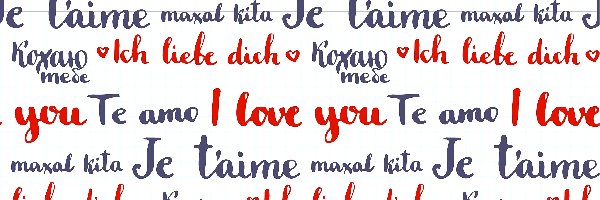 Je t'aime maxal kita Je t'aime maxal kita
Кохаю ♡Ich liebe dich♡ Кохаю ♡Ich liebe dich♡
тебе тебе
you Te amo I love you Te amo I love
maxal kita Je t'aime maxal kita Je t'aime